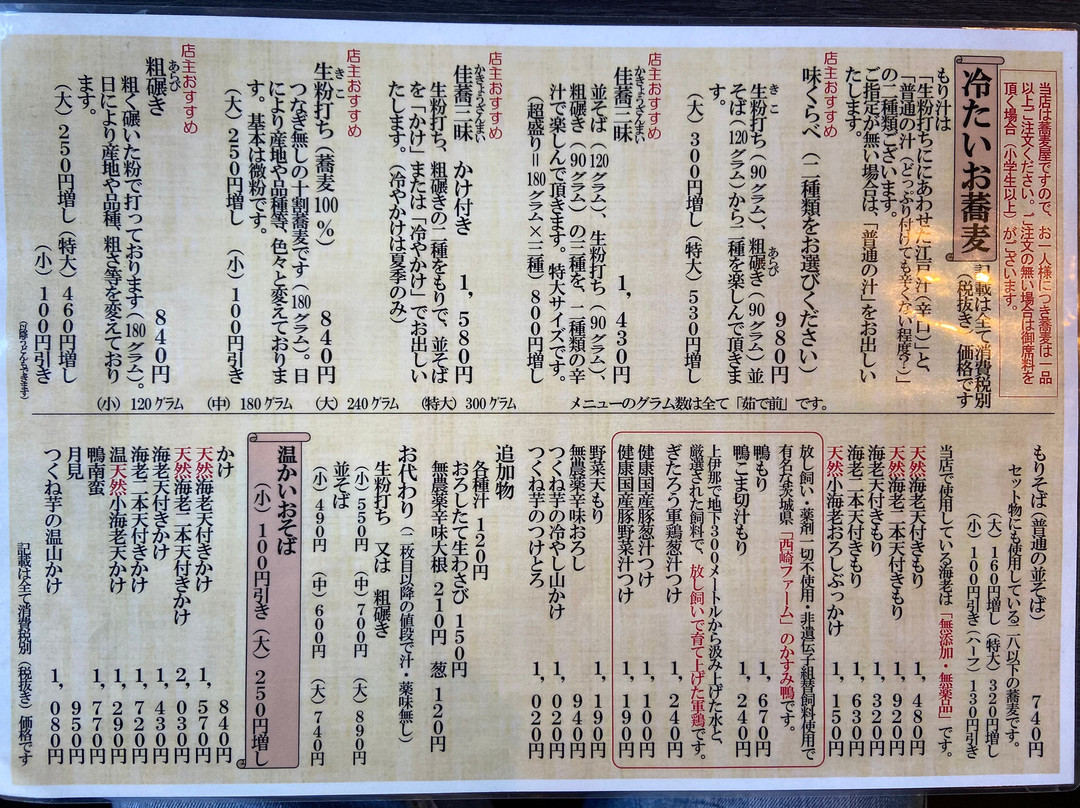 当店は蕎麦屋ですので、お一人様につき蕎麦は一品
以上ご注文ください。ご注文の無い場合は御席料を
頂く場合（小学生以上）がございます。
冷たいお蕎麦
記載は全て消費税別
（税抜き）価格です
もり汁は
「生粉打ちににあわせた江戸汁（辛口）」と、
「普通の汁（どっぷり付けても辛くない程度？）」
の二種類ございます。
ご指定が無い場合は、「普通の汁」をお出しい
たします。
店主おすすめ
味くらべ（二種類をお選びください）
980円
生粉打ち（90グラム）、粗碾き（90グラム）並
そば（120グラム）から二種を楽しんで頂きま
す。
（大）300円増し（特大）530円増し
店主おすすめ
佳蕎三昧 1，430円
かきょうざんまい
並そば（120グラム）、生粉打ち（90グラム）、
粗碾き（90グラム）の三種を、二種類の辛
汁で楽しんで頂きます。特大サイズです。
（超盛り＝180グラム×三種）800円増し
店主おすすめ
佳蕎三昧 かけ付き 1，580円
かきょうざんまい
生粉打ち、粗碾きの二種をもりで、並そば
を「かけ」または「冷やかけ」でお出しい
たします。（冷やかけは夏季のみ）
店主おすすめ
生粉打ち（蕎麦100%） 840円
きこ
つなぎ無しの十割蕎麦です（180グラム）。日
により産地や品種等、色々と変えておりま
す。基本は微粉です。
（大）250円増し（小）100円引き
店主おすすめ
粗碾き 840円
あらびき
粗く碾いた粉で打っております（180グラム）。
日により産地や品種、粗さ等を変えており
ます。
（大）250円増し（特大）460円増し
（小）100円引き
（小）120グラム （中）180グラム （大）240グラム （特大）300グラム メニューのグラム数は全て「茹で前」です。
もりそば（普通の並そば） 740円
セット物にも使用している二八以下の蕎麦です。
（大）160円増し（特大）320円増し
（小）100円引き（ハーフ）130円引き
当店で使用している海老は「無添加・無薬品」です。
天然海老天付きもり 1，480円
天然海老二本天付きもり 1，920円
海老天付きもり 1，320円
海老二本天付きもり 1，630円
天然小海老おろしぶっかけ 1，150円
放し飼い・薬剤一切不使用・非遺伝子組替飼料使用で
有名な茨城県「西崎ファーム」のかすみ鴨です。
鴨もり 1，670円
鴨ごま切汁もり 1，240円
上伊那で地下300メートルから汲み上げた水と、
厳選された飼料で、放し飼いで育て上げた軍鶏です。
ぎたろう軍鶏葱汁つけ 1，240円
健康国産豚葱汁つけ 1，100円
健康国産豚野菜汁つけ 1，190円
野菜天もり 1，190円
無農薬辛味おろし 940円
つくね芋の冷やし山かけ 1，020円
つくね芋のつけとろ 1，020円
追加物
各種汁 120円
おろしたて生わさび 150円
無農薬辛味大根 210円 葱 120円
お代わり（二枚目以降の値段で汁・薬味無し）
生粉打ち 又は 粗碾き
（小）550円 （中）700円 （大）890円
並そば
（小）490円 （中）600円 （大）740円
温かいおそば
（小）100円引き（大）250円増し
かけ 840円
天然海老天付きかけ 1，570円
天然海老二本天付きかけ 2，030円
海老天付きかけ 1，430円
海老二本天付きかけ 1，720円
温天然小海老天かけ 1，290円
鴨南蛮 1，770円
月見 950円
つくね芋の温山かけ 1，080円
記載は全て消費税別（税抜き）価格です